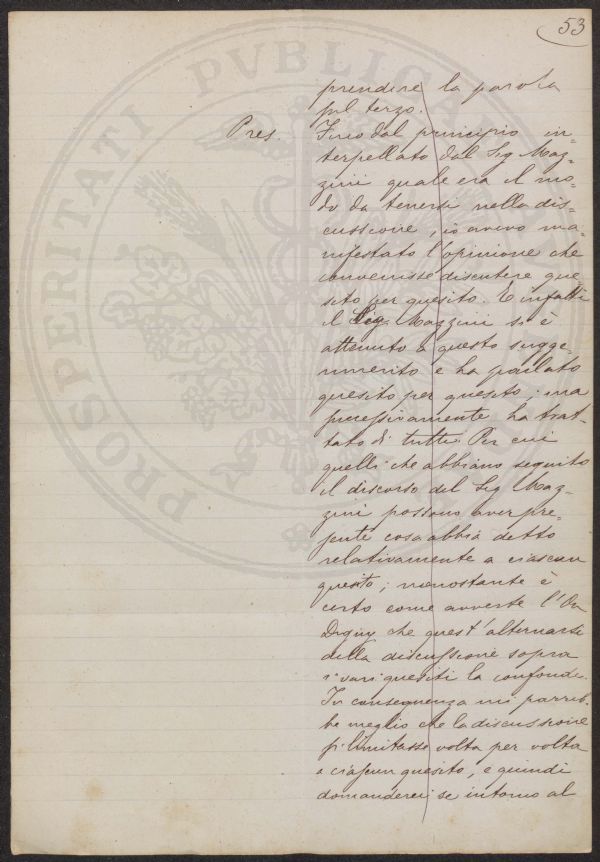 53
prendere la parola
sul terzo.
Pres. Fino dal principio in=
terpellato dal Sig Maz=
zini quale era il mo=
do da tenersi nella dis=
cussione, io avevo ma=
nifestato l'opinione che
convenisse discutere que=
sito per quesito. E infatti
il Sig. Mazzini si è
attenuto a questo sugge=
rimento e ha parlato
quesito per quesito; ma
successivamente ha trat=
tato di tutti. Per cui
quelli che abbiano seguito
il discorso del Sig Maz=
zini possono aver pre=
sente cosa abbia detto
relativamente a ciascun
quesito; nonostante è
certo come avverte l'On
che quest'alternarsi
della discussione sopra
i vari quesiti la confonde.
In conseguenza mi parreb.
be meglio che la discussione
si limitasse volta per volta
a ciascun quesito, e quindi
domanderei se intorno al
PROSPERITATI PVBLICAE